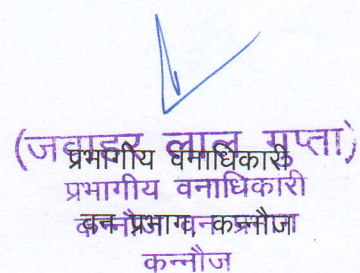 (जवाहर लाल गुप्ता)
प्रभागीय वनाधिकारी
प्रभागीय वनाधिकारी
वन प्रभाग, कन्नौज
वन प्रभाग
कन्नौज